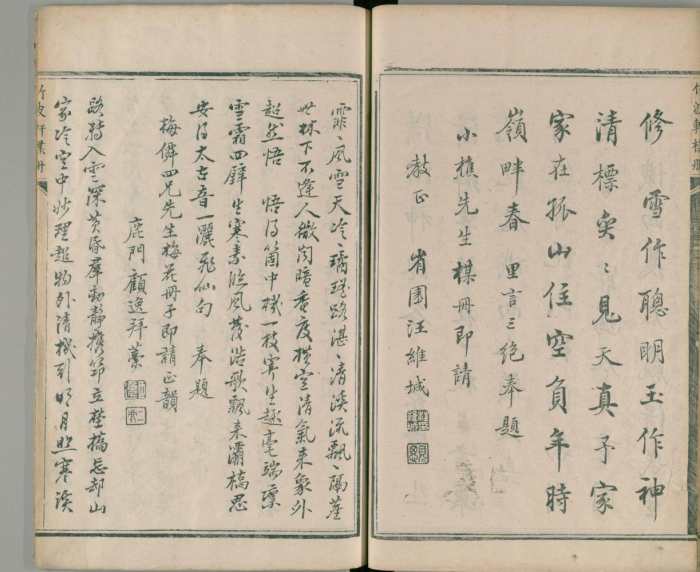 修雪作聰明玉作神
清標奕〻見天真予家
家在孤山住空負年時
嶺畔春 里言三絕奉題
小樵先生楳冊即請
教正 省園汪維城
霏〻風雪天冷〻璚瑤路湛〻清淡流飄〻隔塵
世林下不逢人微聞暗香度橫空清氣来象外
超然悟 悟得箇中機一枝寒生趣毫端凜
雪霜四壁生寒素臨風發浩歌飄来灞橋思
安得太古音一灑飛仙句 奉題
梅儕四兄先生梅花冊子即請正韻
鹿門顧逸拜藁
踏入雲深黃昏羣動靜携筇立埜橋忘却山
家冷空中妙理超物外清機引明月照寒溪